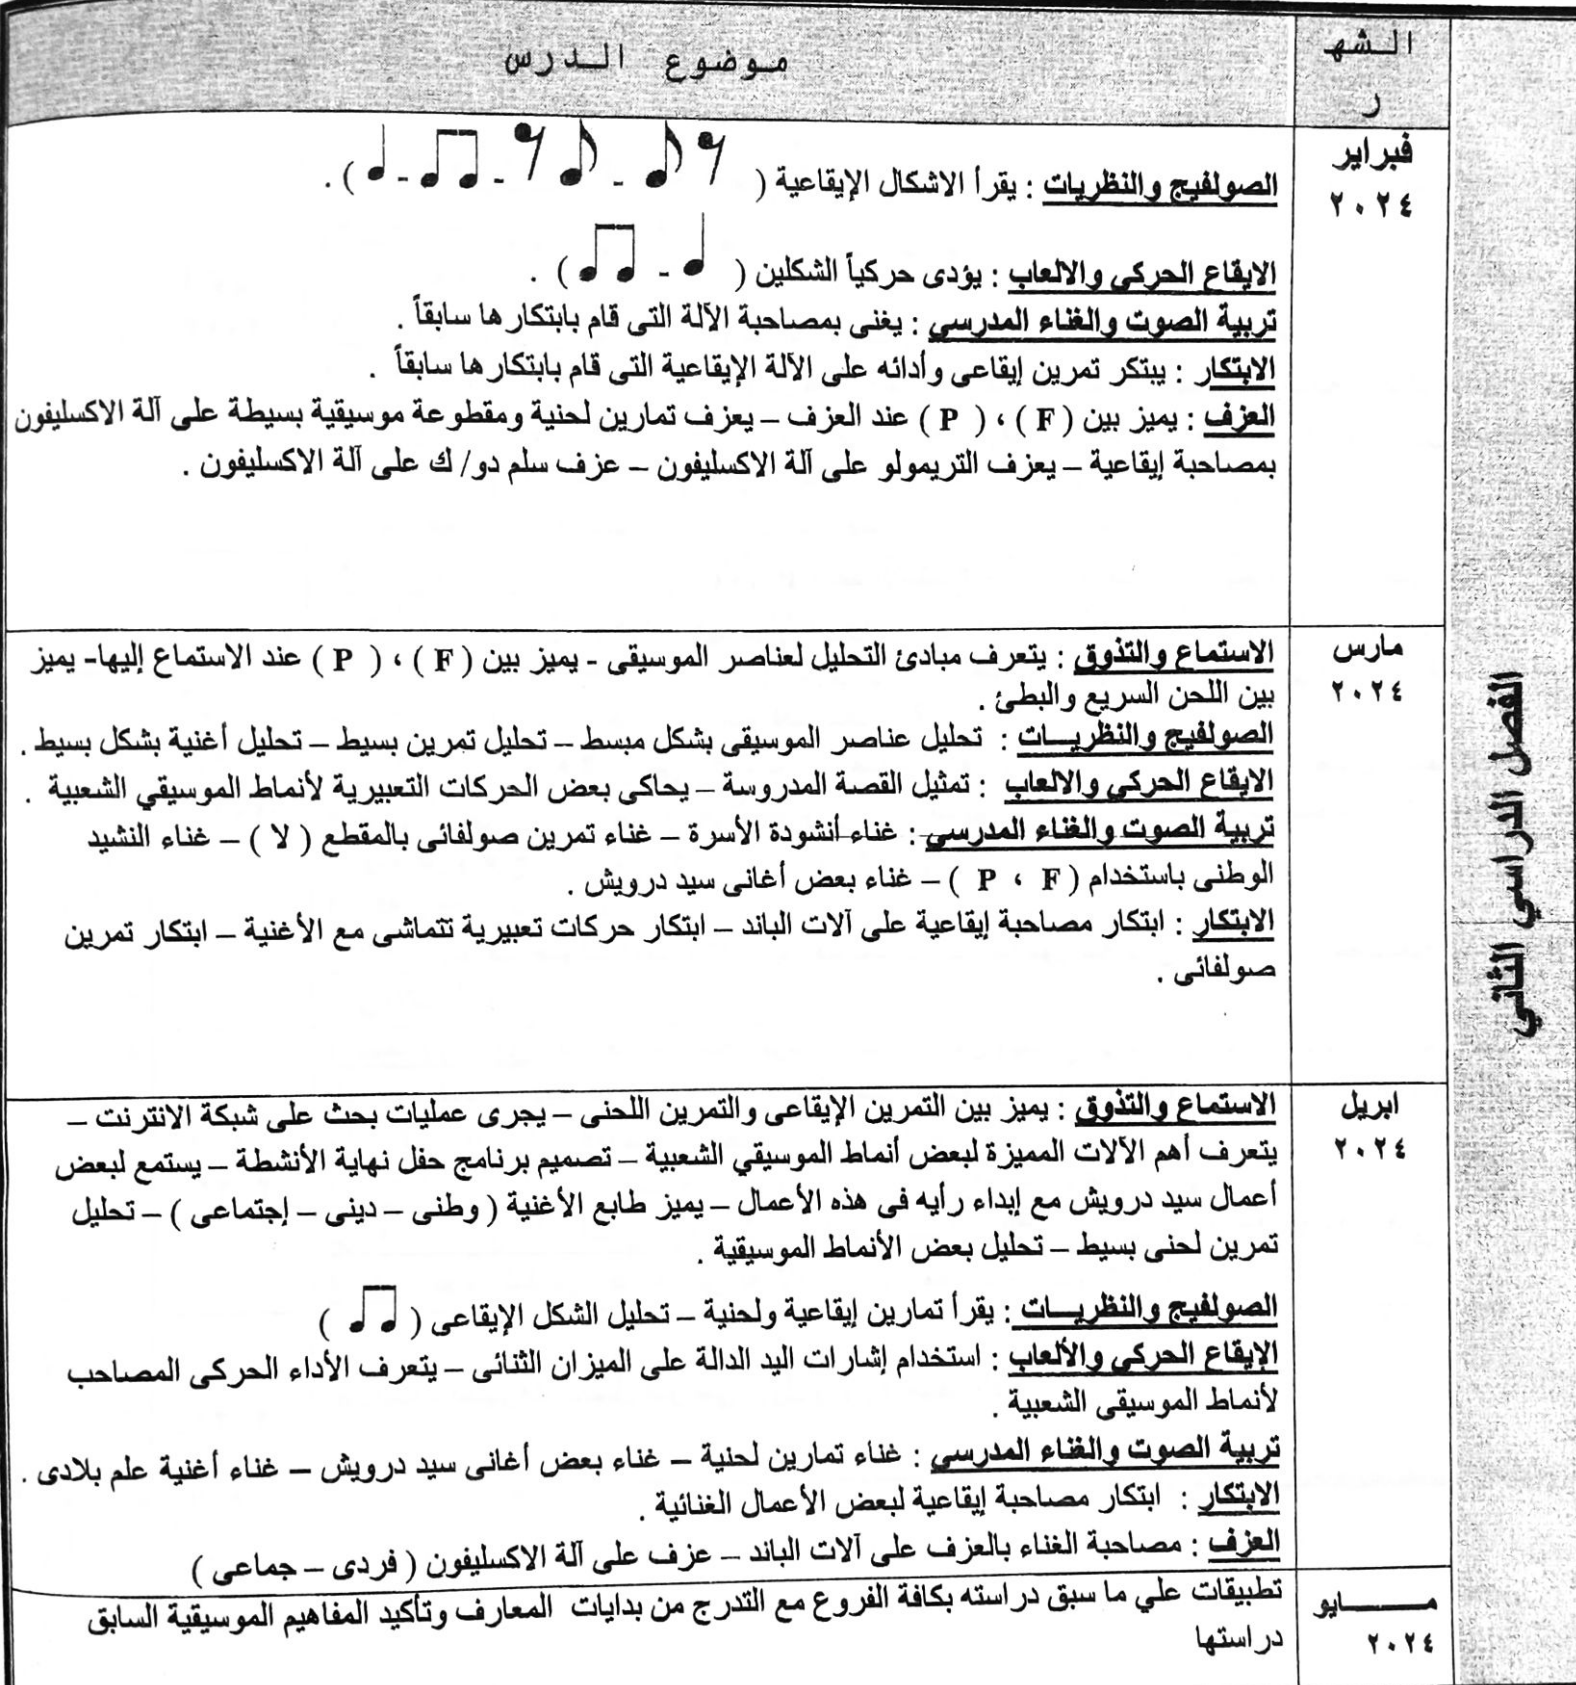 الـشهـ
ر
مـوضوع الــدرس
الفصل الدراسي الثاني
فبراير
٢٠٢٤
الصولفيج والنظريات : يقرأ الاشكال الإيقاعية ( 𝄾 ♪ - 𝄾 ♪ - ♫ - ♩ ) .
الايقاع الحركى والالعاب : يؤدى حركياً الشكلين ( ♩ - ♫ ) .
تربية الصوت والغناء المدرسي : يغنى بمصاحبة الآلة التى قام بابتكارها سابقاً .
الابتكار : يبتكر تمرين إيقاعى وأدائه على الآلة الإيقاعية التى قام بابتكارها سابقاً .
العزف : يميز بين ( F ) ، ( P ) عند العزف – يعزف تمارين لحنية ومقطوعة موسيقية بسيطة على آلة الاكسليفون
بمصاحبة إيقاعية – يعزف التريمولو على آلة الاكسليفون – عزف سلم دو/ ك على آلة الاكسليفون .
مارس
٢٠٢٤
الاستماع والتذوق : يتعرف مبادئ التحليل لعناصر الموسيقى - يميز بين ( F ) ، ( P ) عند الاستماع إليها- يميز
بين اللحن السريع والبطئ .
الصولفيج والنظريــات : تحليل عناصر الموسيقى بشكل مبسط – تحليل تمرين بسيط – تحليل أغنية بشكل بسيط .
الايقاع الحركى والالعاب : تمثيل القصة المدروسة – يحاكى بعض الحركات التعبيرية لأنماط الموسيقي الشعبية .
تربية الصوت والغناء المدرسي : غناء أنشودة الأسرة – غناء تمرين صولفائى بالمقطع ( لا ) – غناء النشيد
الوطنى باستخدام ( P ، F ) – غناء بعض أغانى سيد درويش .
الابتكار : ابتكار مصاحبة إيقاعية على آلات الباند – ابتكار حركات تعبيرية تتماشى مع الأغنية – ابتكار تمرين
صولفائى .
ابريل
٢٠٢٤
الاستماع والتذوق : يميز بين التمرين الإيقاعى والتمرين اللحنى – يجرى عمليات بحث على شبكة الانترنت –
يتعرف أهم الآلات المميزة لبعض أنماط الموسيقي الشعبية – تصميم برنامج حفل نهاية الأنشطة – يستمع لبعض
أعمال سيد درويش مع إبداء رأيه فى هذه الأعمال – يميز طابع الأغنية ( وطنى – دينى – إجتماعى ) – تحليل
تمرين لحنى بسيط – تحليل بعض الأنماط الموسيقية .
الصولفيج والنظريــات : يقرأ تمارين إيقاعية ولحنية – تحليل الشكل الإيقاعى ( ♫ )
الإيقاع الحركي والألعاب : استخدام إشارات اليد الدالة على الميزان الثنائى – يتعرف الأداء الحركى المصاحب
لأنماط الموسيقى الشعبية .
تربية الصوت والغناء المدرسي : غناء تمارين لحنية – غناء بعض أغانى سيد درويش – غناء أغنية علم بلادى .
الابتكار : ابتكار مصاحبة إيقاعية لبعض الأعمال الغنائية .
العزف : مصاحبة الغناء بالعزف على آلات الباند – عزف على آلة الاكسليفون ( فردى – جماعى )
مـــــايو
٢٠٢٤
تطبيقات علي ما سبق دراسته بكافة الفروع مع التدرج من بدايات المعارف وتأكيد المفاهيم الموسيقية السابق
دراستها